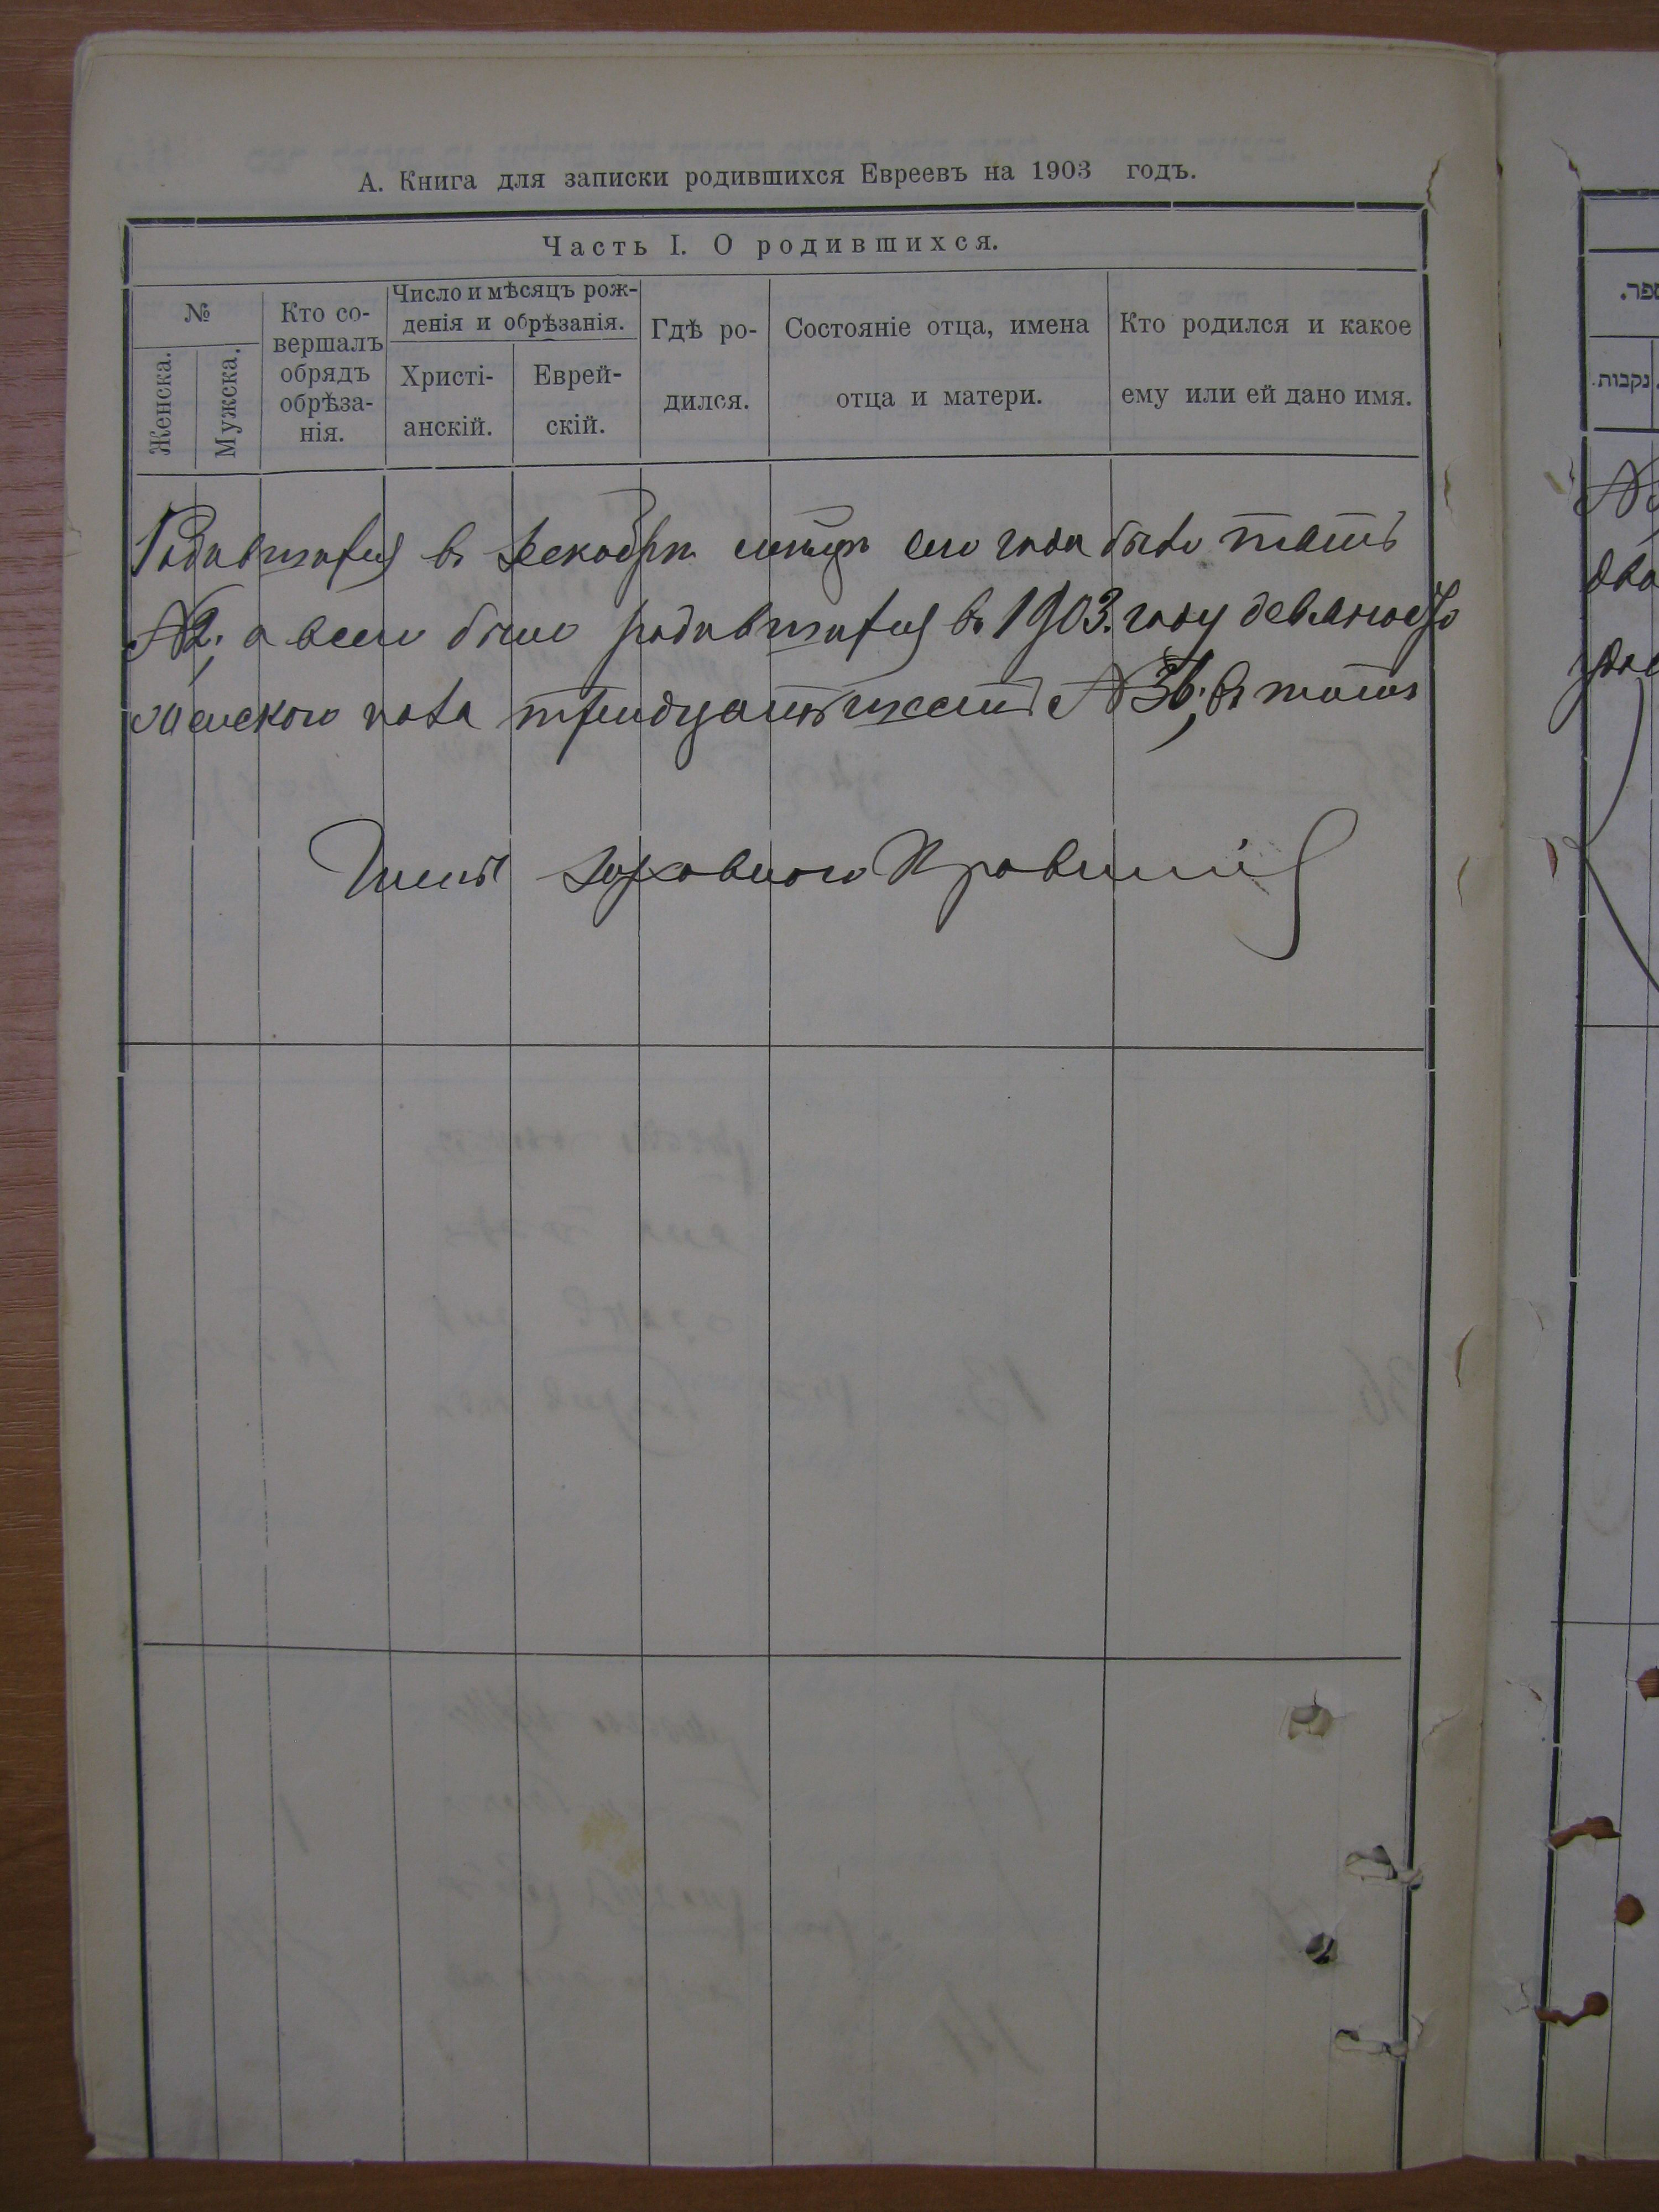 А. Книга для записки родившихся Евреевъ на 1903 годъ.
Часть I. О родившихся.
№
Женска.
Мужска.
Кто со-
вершалъ
обрядъ
обрѣза-
нія.
Число и мѣсяцъ рож-
денія и обрѣзанія.
Христі-
анскій.
Еврей-
скій.
Гдѣ ро-
дился.
Состояніе отца, имена
отца и матери.
Кто родился и какое
ему или ей дано имя.
Родившихся въ Декабрѣ сего года было
№2; а всего было родившихся въ 1903. году
женского пола тридцать шесть №36; въ томъ
Члены Духовного Правленія
ספר.
נקבות.
два